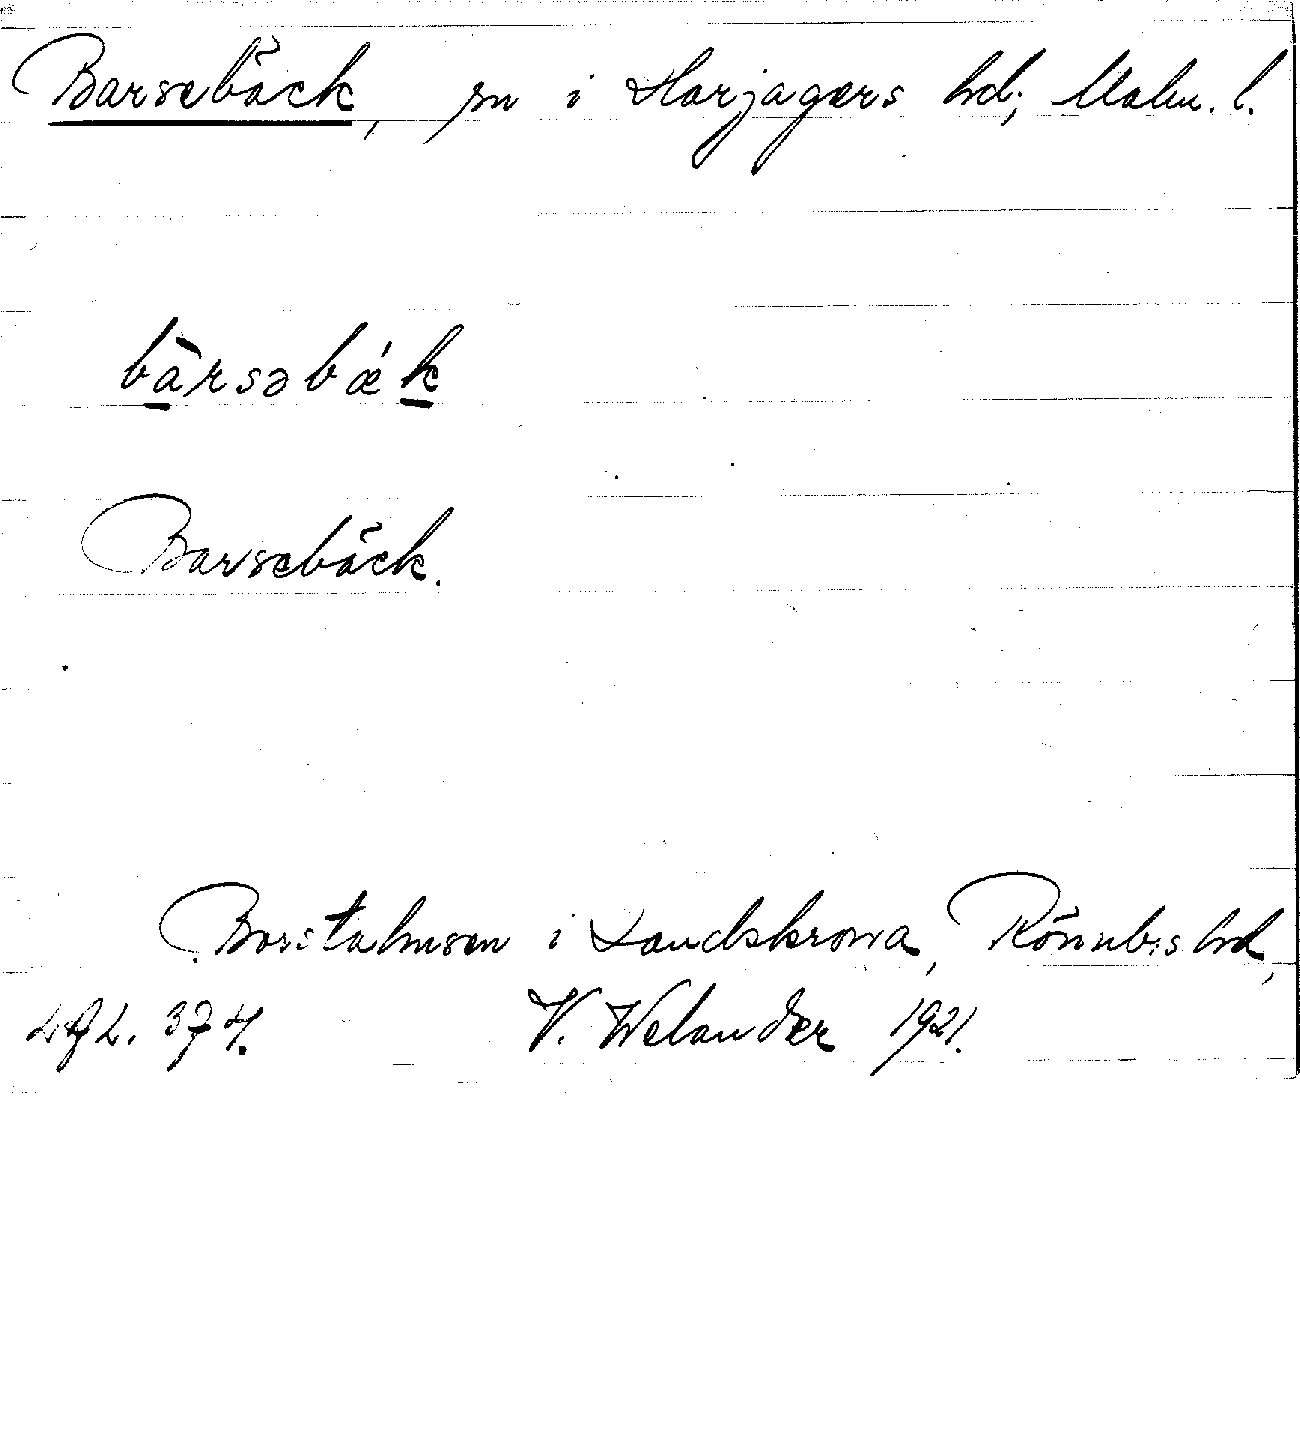 Barsebäck, sn i Harjagers hd; Malm. l.
bàrsəbǽk
Barsebäck.
Borstahusen i Landskrona, Rönneb:s hd,
LAL. 374. V. Welander 1921.